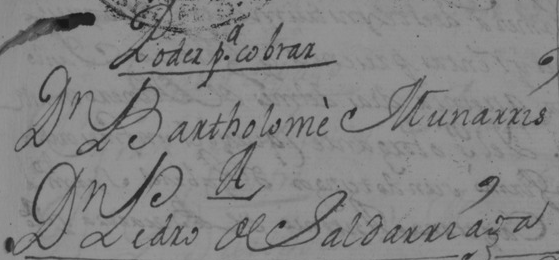 Poder p.ª cobrar
Dn Bartholomè Munarris
A
Dn Pedro de Saldarriaga